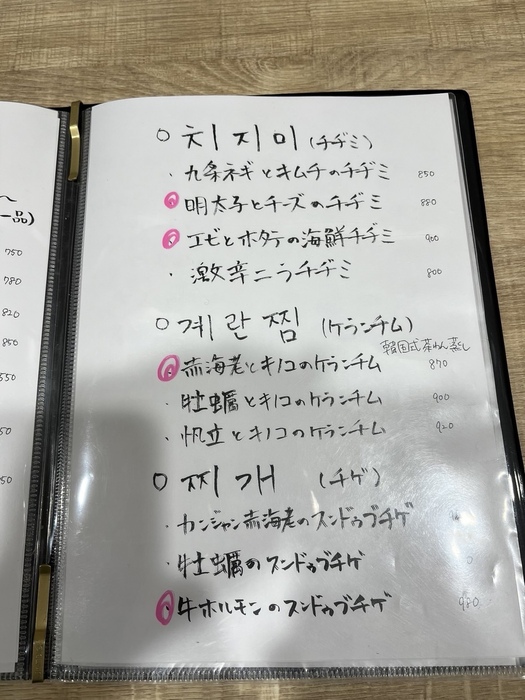 ～
一品)
750
780
820
850
550
50
50
○ 치지미 (チヂミ)
・九条ネギとキムチのチヂミ 850
明太子とチーズのチヂミ 880
エビとホタテの海鮮チヂミ 900
・激辛ニラチヂミ 800
○ 계란찜 (ケランチム)
韓国式茶わん蒸し
赤海老とキノコのケランチム 870
・牡蠣とキノコのケランチム 900
・帆立とキノコのケランチム 920
○ 찌개 (チゲ)
・カンジャン赤海老のスンドゥブチゲ
・牡蠣のスンドゥブチゲ
牛ホルモンのスンドゥブチゲ 980